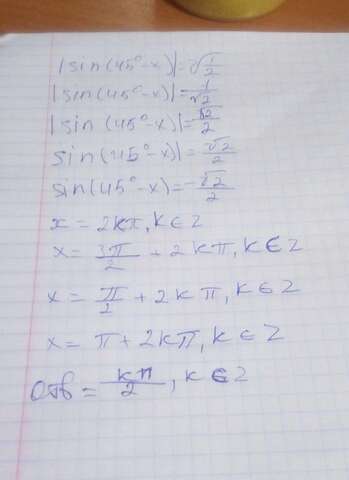 |sin(45°-x)|=√1/2
|sin(45°-x)|=1/√2
|sin (45°-x)|=√2/2
sin(45°-x)|=√2/2
sin(45°-x)=-√2/2
x=2kπ,k∈Z
x=3π/2+2kπ,k∈Z
x=π/2+2kπ,k∈Z
x=π+2kπ,k∈Z
Отв=kπ/2,k∈Z